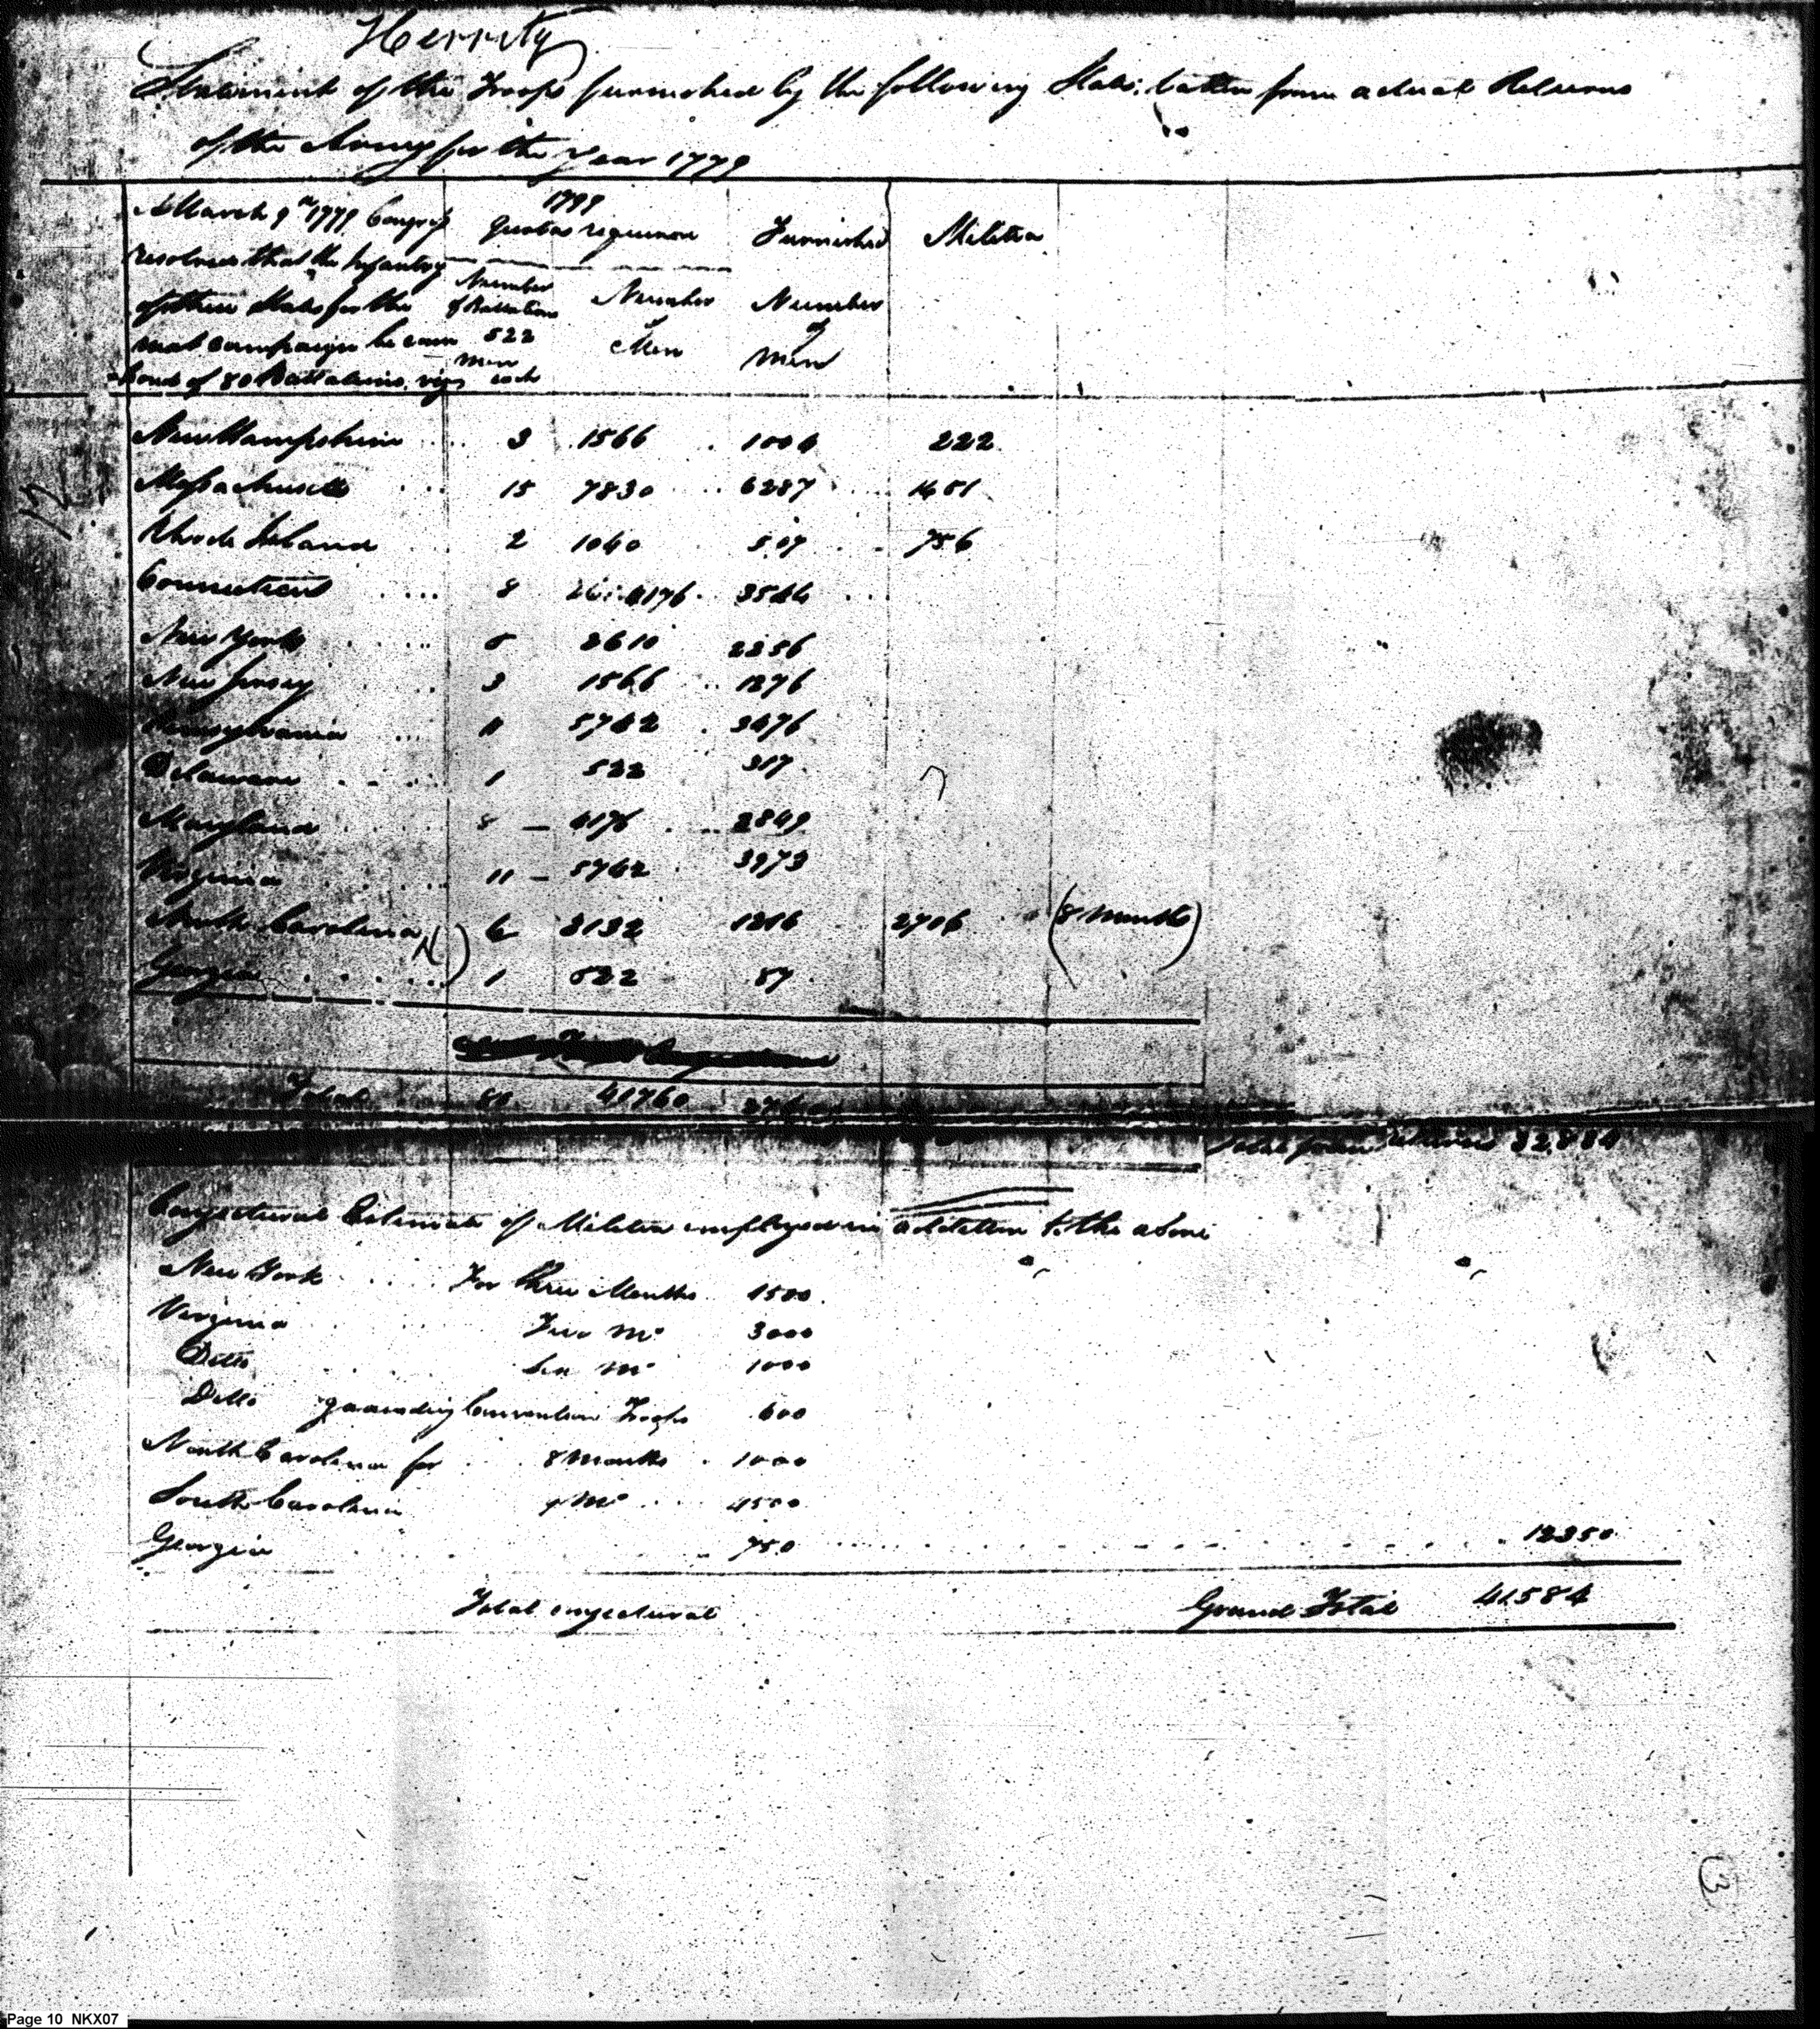 Herrity
Statement of the Troops furnished by the following States; taken from actual Returns
of the Army for the Year 1779
March 9th 1779 Congress
resolved that the Infantry
of these States for the
next campaign be com
posed of 80 Battalions, viz
1779
Quotas required
Furnished
Militia
Number
of Battalions
522
men
each
Number
of
Men
Number
of
men
New Hampshire 3 1566 1004 222
Massachusetts 15 7830 6287 1451
Rhode Island 2 1040 507 756
Connecticut 8 4176 3544
New York 5 2610 2256
New Jersey 3 1566 1276
Pennsylvania 11 5742 3476
Delaware 1 522 317
Maryland 8 4176 2849
Virginia 11 5742 3973
North Carolina 6 3132 1216 2706 (8 Months)
Georgia 1 522 87
Total 80 41760
Total from returns 32.834
Conjectural Estimate of Militia employed in addition to the above
New York For three Months 1500
Virginia Two Mo 3000
Ditto Six Mo 1000
Ditto guarding Convention Troops 600
North Carolina for 8 Months 1000
South Carolina 9 Mo 4500
Georgia 750 12350
Total conjectural
Grand Total 41584
12
3
Page 10 NKX07